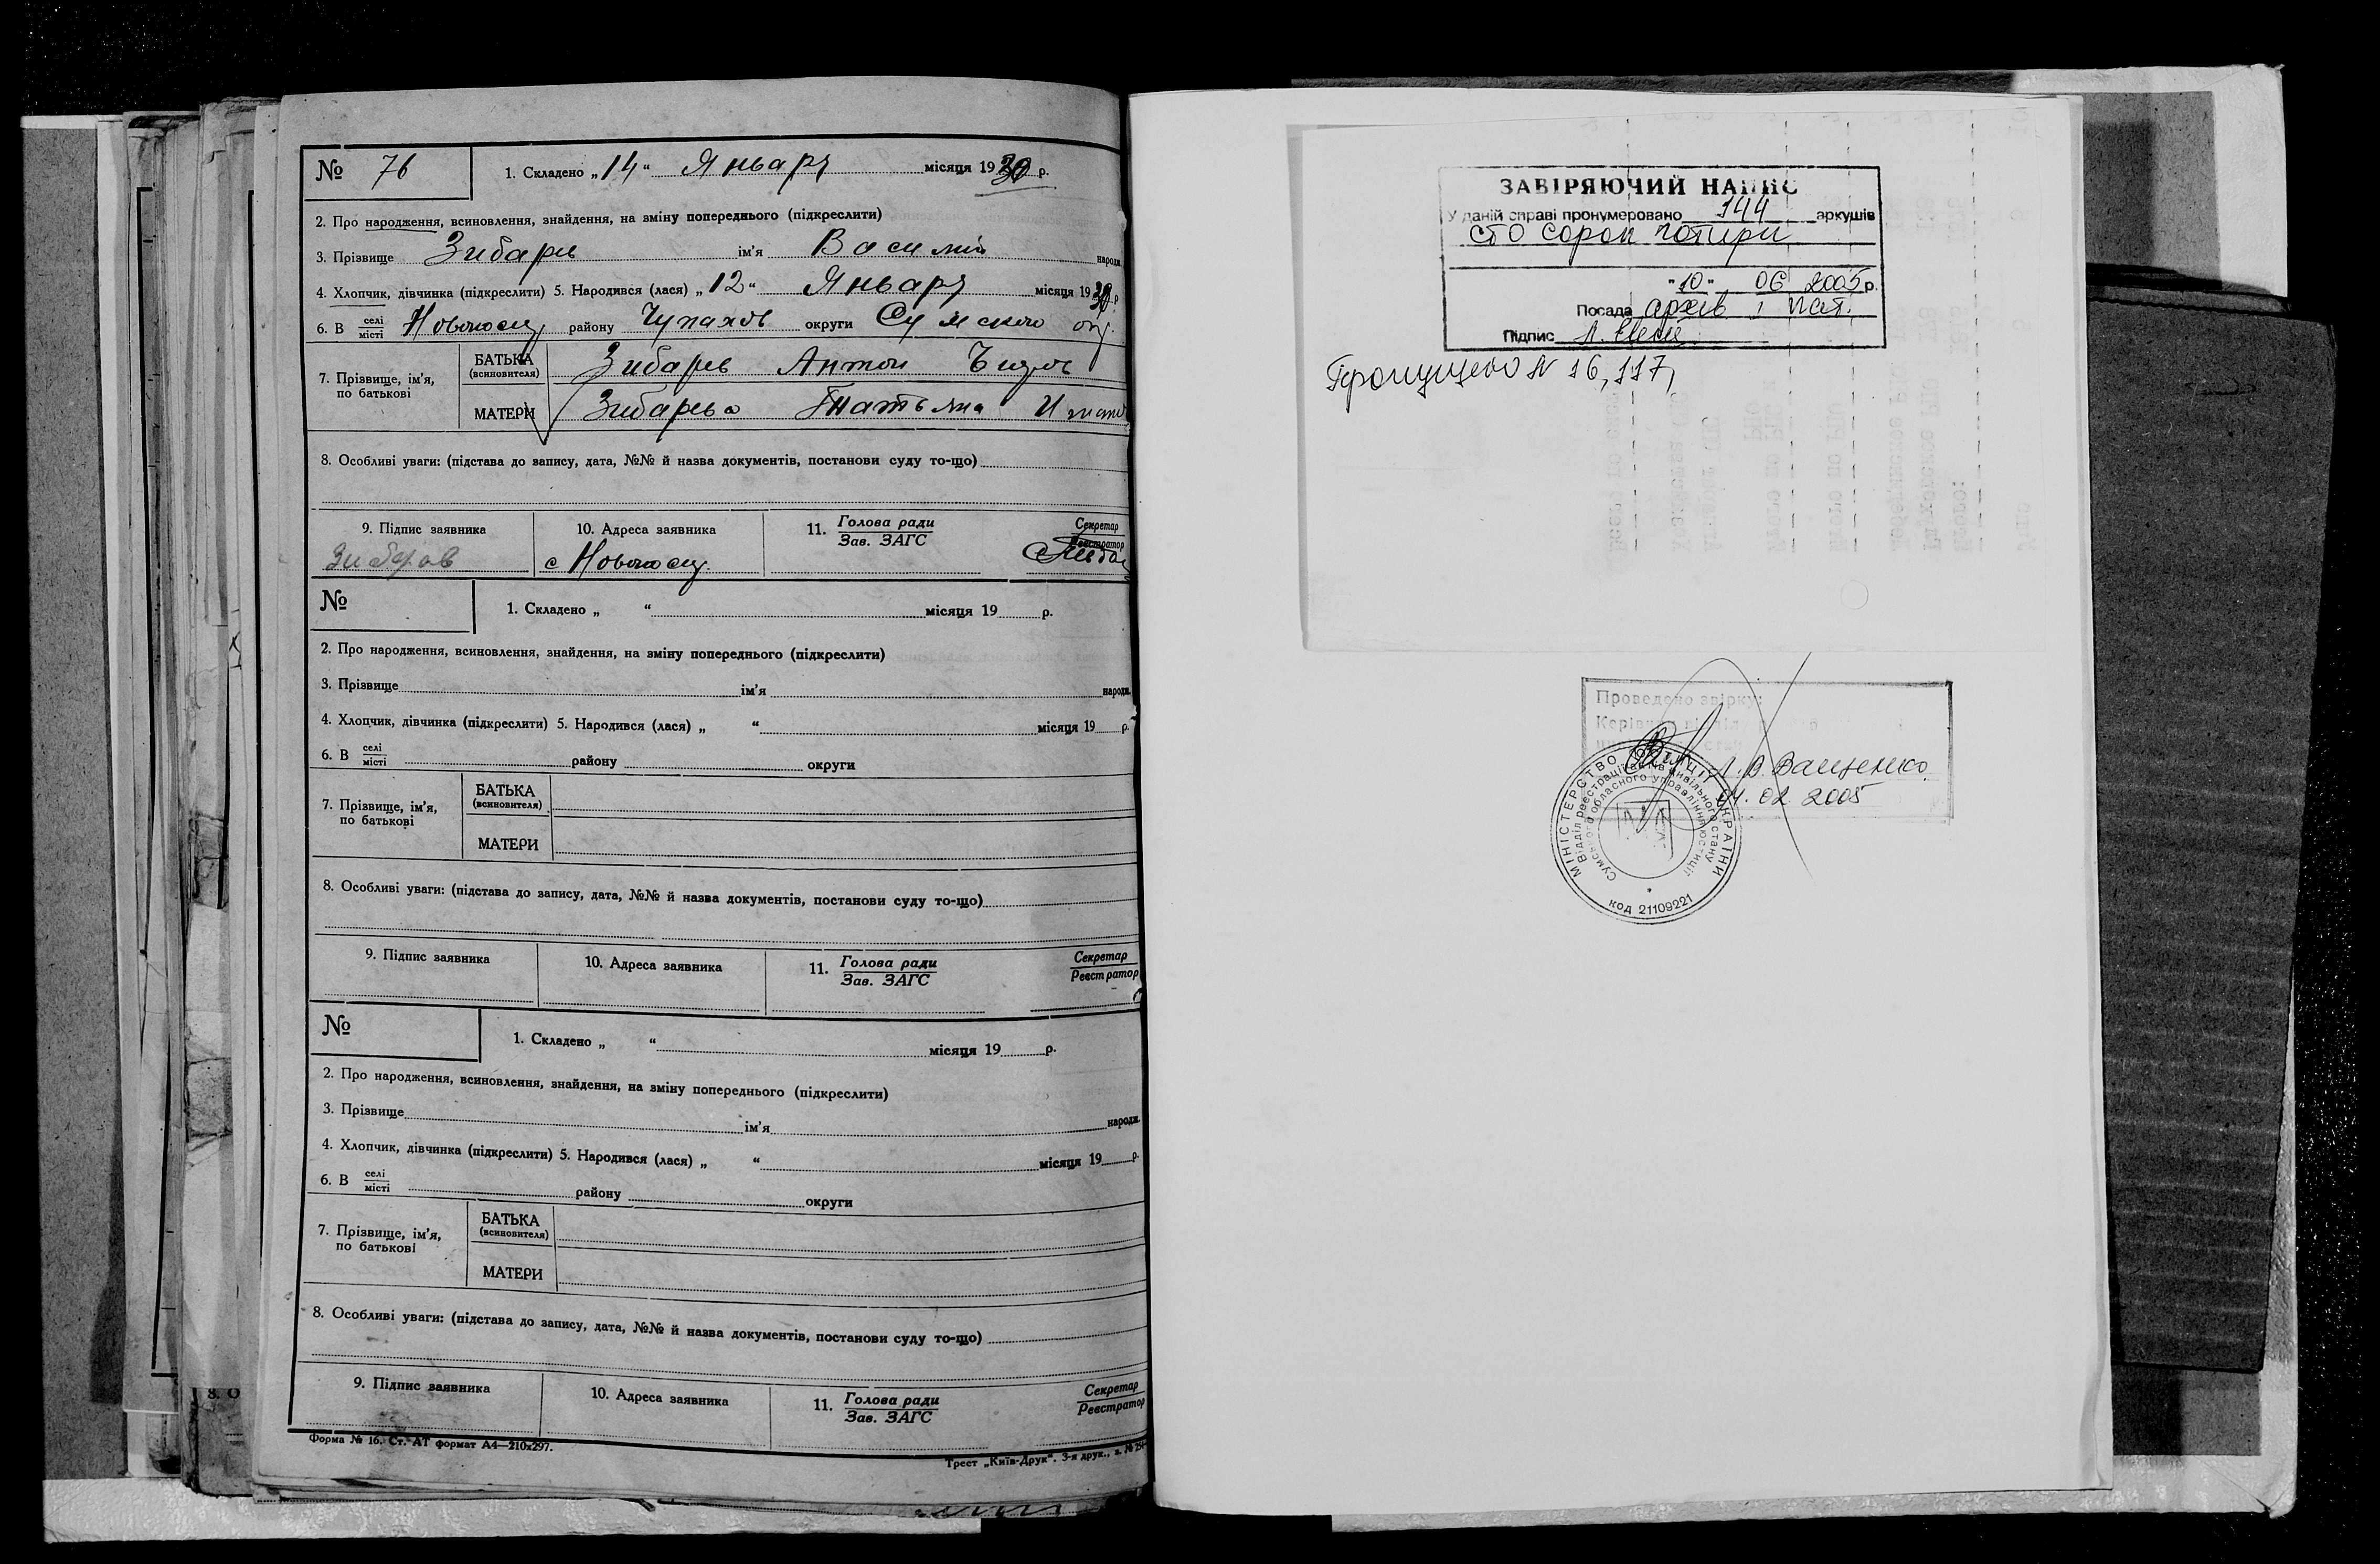 № 76
1. Складено „14“ Январч місяця 1930 р.
2. Про народження, всиновлення, знайдення, на зміну попереднього (підкреслити)
3. Прізвище Зибарев ім'я Василий народн.
4. Хлопчик, дівчинка (підкреслити) 5. Народився (лася) „12“ Январч місяця 1930 р
6. В селі місті району Чупахов округи Сумского окр.
7. Прізвище, ім'я, по батькові
БАТЬКА (всиновителя) Зибарев Антон
МАТЕРИ Зибарева Татьяна
8. Особливі уваги: (підстава до запису, дата, №№ й назва документів, постанови суду то-що)
9. Підпис заявника 10. Адреса заявника 11. Голова ради Зав. ЗАГС Секретар Реєстратор
с
№
1. Складено „ “ місяця 19 р.
2. Про народження, всиновлення, знайдення, на зміну попереднього (підкреслити)
3. Прізвище ім'я народн.
4. Хлопчик, дівчинка (підкреслити) 5. Народився (лася) „ “ місяця 19 р.
6. В селі місті району округи
7. Прізвище, ім'я, по батькові
БАТЬКА (всиновителя)
МАТЕРИ
8. Особливі уваги: (підстава до запису, дата, №№ й назва документів, постанови суду то-що)
9. Підпис заявника 10. Адреса заявника 11. Голова ради Зав. ЗАГС Секретар Реєстратор
№
1. Складено „ “ місяця 19 р.
2. Про народження, всиновлення, знайдення, на зміну попереднього (підкреслити)
3. Прізвище ім'я народн.
4. Хлопчик, дівчинка (підкреслити) 5. Народився (лася) „ “ місяця 19 р.
6. В селі місті району округи
7. Прізвище, ім'я, по батькові
БАТЬКА (всиновителя)
МАТЕРИ
8. Особливі уваги: (підстава до запису, дата, №№ й назва документів, постанови суду то-що)
9. Підпис заявника 10. Адреса заявника 11. Голова ради Зав. ЗАГС Секретар Реєстратор
Форма № 16. Ст. АТ формат А4—210x297.
Трест „Київ-Друк“. 3-я друк., з. №
8. О
ЗАВІРЯЮЧИЙ НАПИС
У даній справі пронумеровано 144 аркушів
сто сорок чотири
"10" 06 2005р.
Посада архів
Підпис
Пропущено № 16, 117,
Проведено звірку:
Л. В. Ващенко
04. 02 2005
МІНІСТЕРСТВО ЮСТИЦІЇ УКРАЇНИ
Відділ реєстрації актів цивільного стану
Сумського обласного управління юстиції
код 21109221